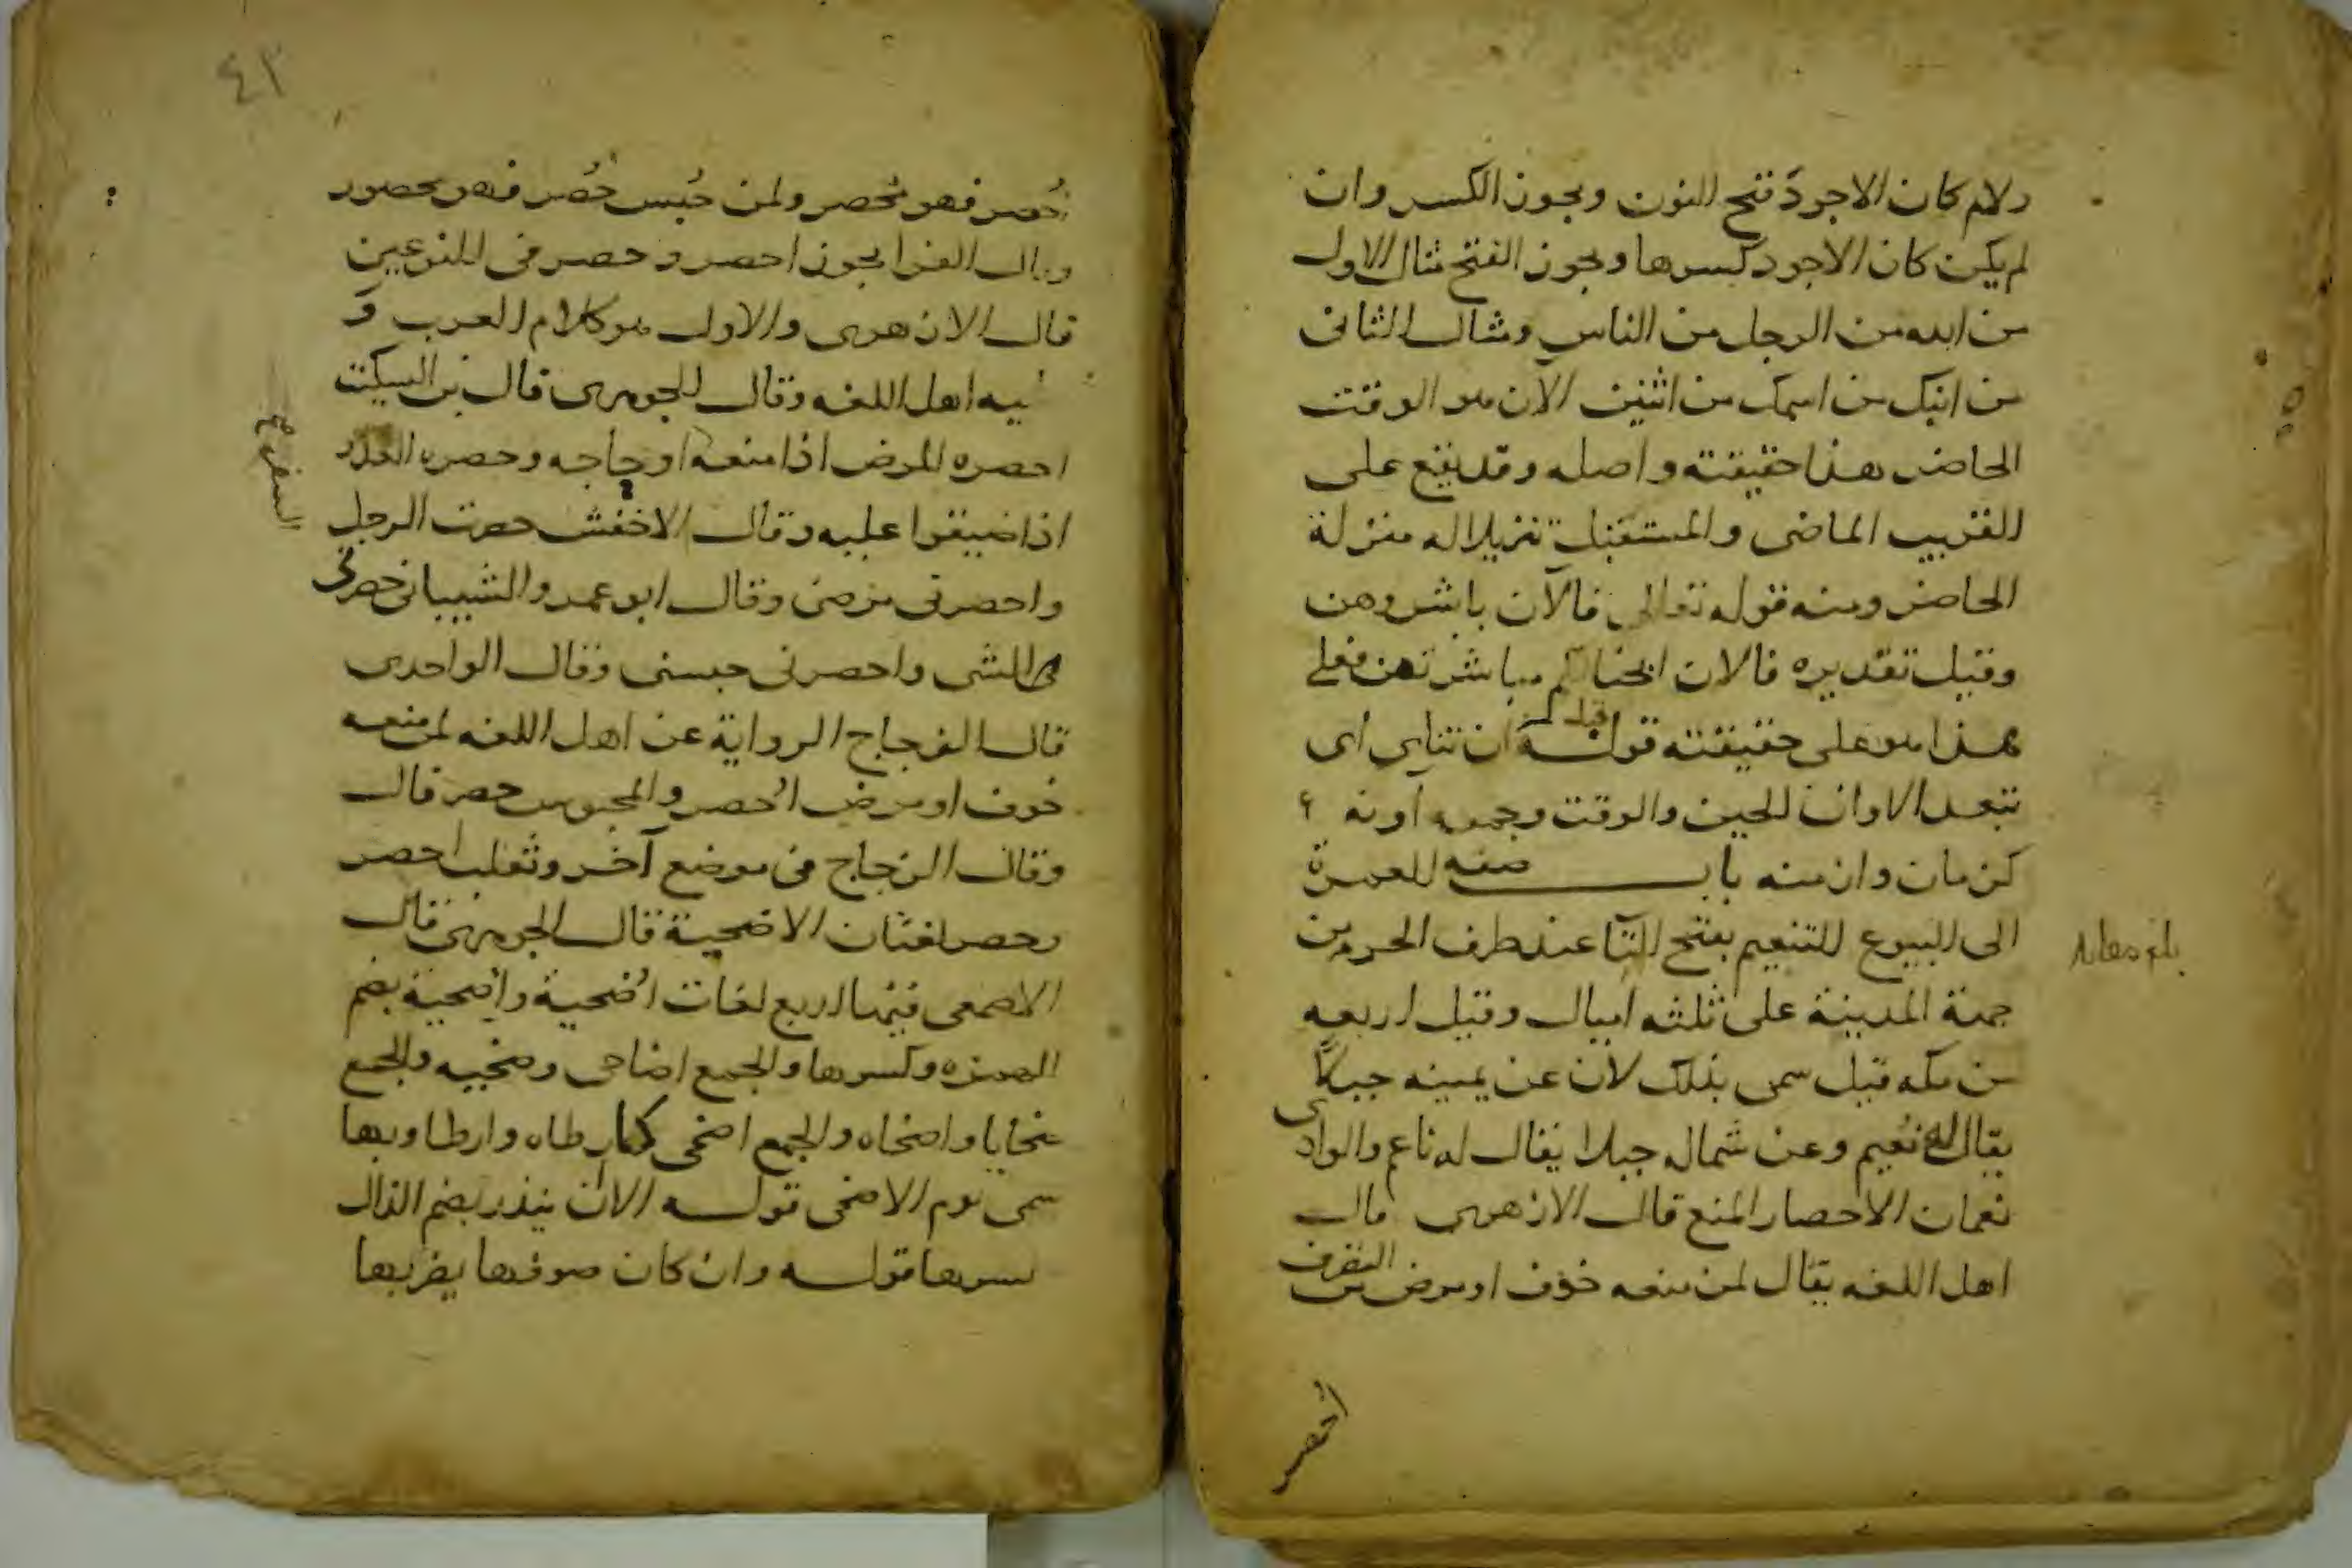 ولام كان الاجود فتح النون ويجوز الكسر وان
لم يكن كان الاجود كسرها ويجوز الفتح مثال الاول
من ابنه من الرجل من الناس ومثال الثاني
من ابنك من اسمك من اثنين الآن هو الوقت
الحاضر هذا حقيقته واصله وقد يقع على
القريب الماضي والمستقبل تنزيلا له منزلة
الحاضر ومنه قوله تعالى فالآن باشروهن
وقيل تقديره فالان ابحنا لكم مباشرتهن فعلى
هذا هو على حقيقته قوله قبل ان تناى اى
تبعد الاوان الحين والوقت وجمعه آونه
كزمان وازمنه باب صفه العمرة
الى البيوع التنعيم بفتح التا عند طرف الحرم من
جهة المدينة على ثلثه اميال وقيل اربعه
من مكه قيل سمى بذلك لان عن يمينه جبلا
يقال له نعيم وعن شماله جبلا يقال له ناعم والوادى
نعمان الاحصار المنع قال الازهرى قال
اهل اللغه يقال لمن منعه خوف او مرض من
التصرف
احصر
بلغ مقابله
٤٣
اُحصر فهو مُحصر ولمن حُبس حُصر فهو محصور
وقال الفرا يجوز احصر وحصر فى النوعين
قال الازهرى والاول هو كلام العرب و
عليه اهل اللغه وقال الجوهرى قال بن السكيت
احصره المرض اذا منعه او حاجه وحصره العدو
اذا ضيقوا عليه وقال الاخفش حصرت الرجل
واحصرنى مرضى وقال ابو عمرو الشيبانى حصرنى
الشى واحصرنى حبسنى وقال الواحدى
قال الزجاج الرواية عن اهل اللغه لمن منعه
خوف او مرض اُحصر والمحبوس حصر قال
وقال الزجاج فى موضع آخر وثعلب احصر
وحصر لغتان الاضحية قال الجوهرى قال
الاصمعى فيها اربع لغات اُضحية واِضحية بضم
الهمزه وكسرها والجمع اضاحى وضحيه والجمع
ضحايا واضحاه والجمع اضحى كما رطاه وارطا وبها
سمى يوم الاضحى قوله الان ينذر بضم الذال
وكسرها قوله وان كان صوفها يضر بها